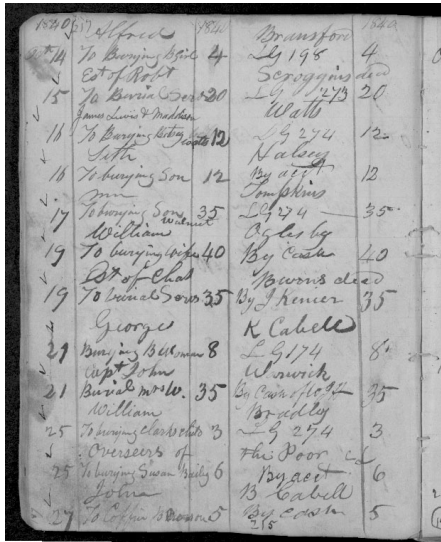 1840 1840 1840
Alfred Bransford
14 To Burying B girl 4 LG 198 4
Est of Robt Scroggins decd
15 To Burial Serv 20 LG 273 20
James Lewis & Maddison Watts
16 To Burying Betsy Watts 12 LG 274 12
Seth Halsey
16 To burying Son 12 By acct 12
Tompkins
17 To burying Son Walnut 35 LG 274 35
William Oglesby
19 To burying wife 40 By Cash 40
Est of Chas Burns decd
19 To burial Serv 35 By J 35
George K Cabell
21 Burying B Woman 8 LG 174 8
Capt John Warwick
21 Burial Mrs W. 35 By Cash 35
William Bradly
25 To burying Clark 3 LG 274 3
Overseers of the Poor
25 To burying Susan Baily 6 By acct 6
John B Cabell
27 To Coffin B 5 By Cash 5
255